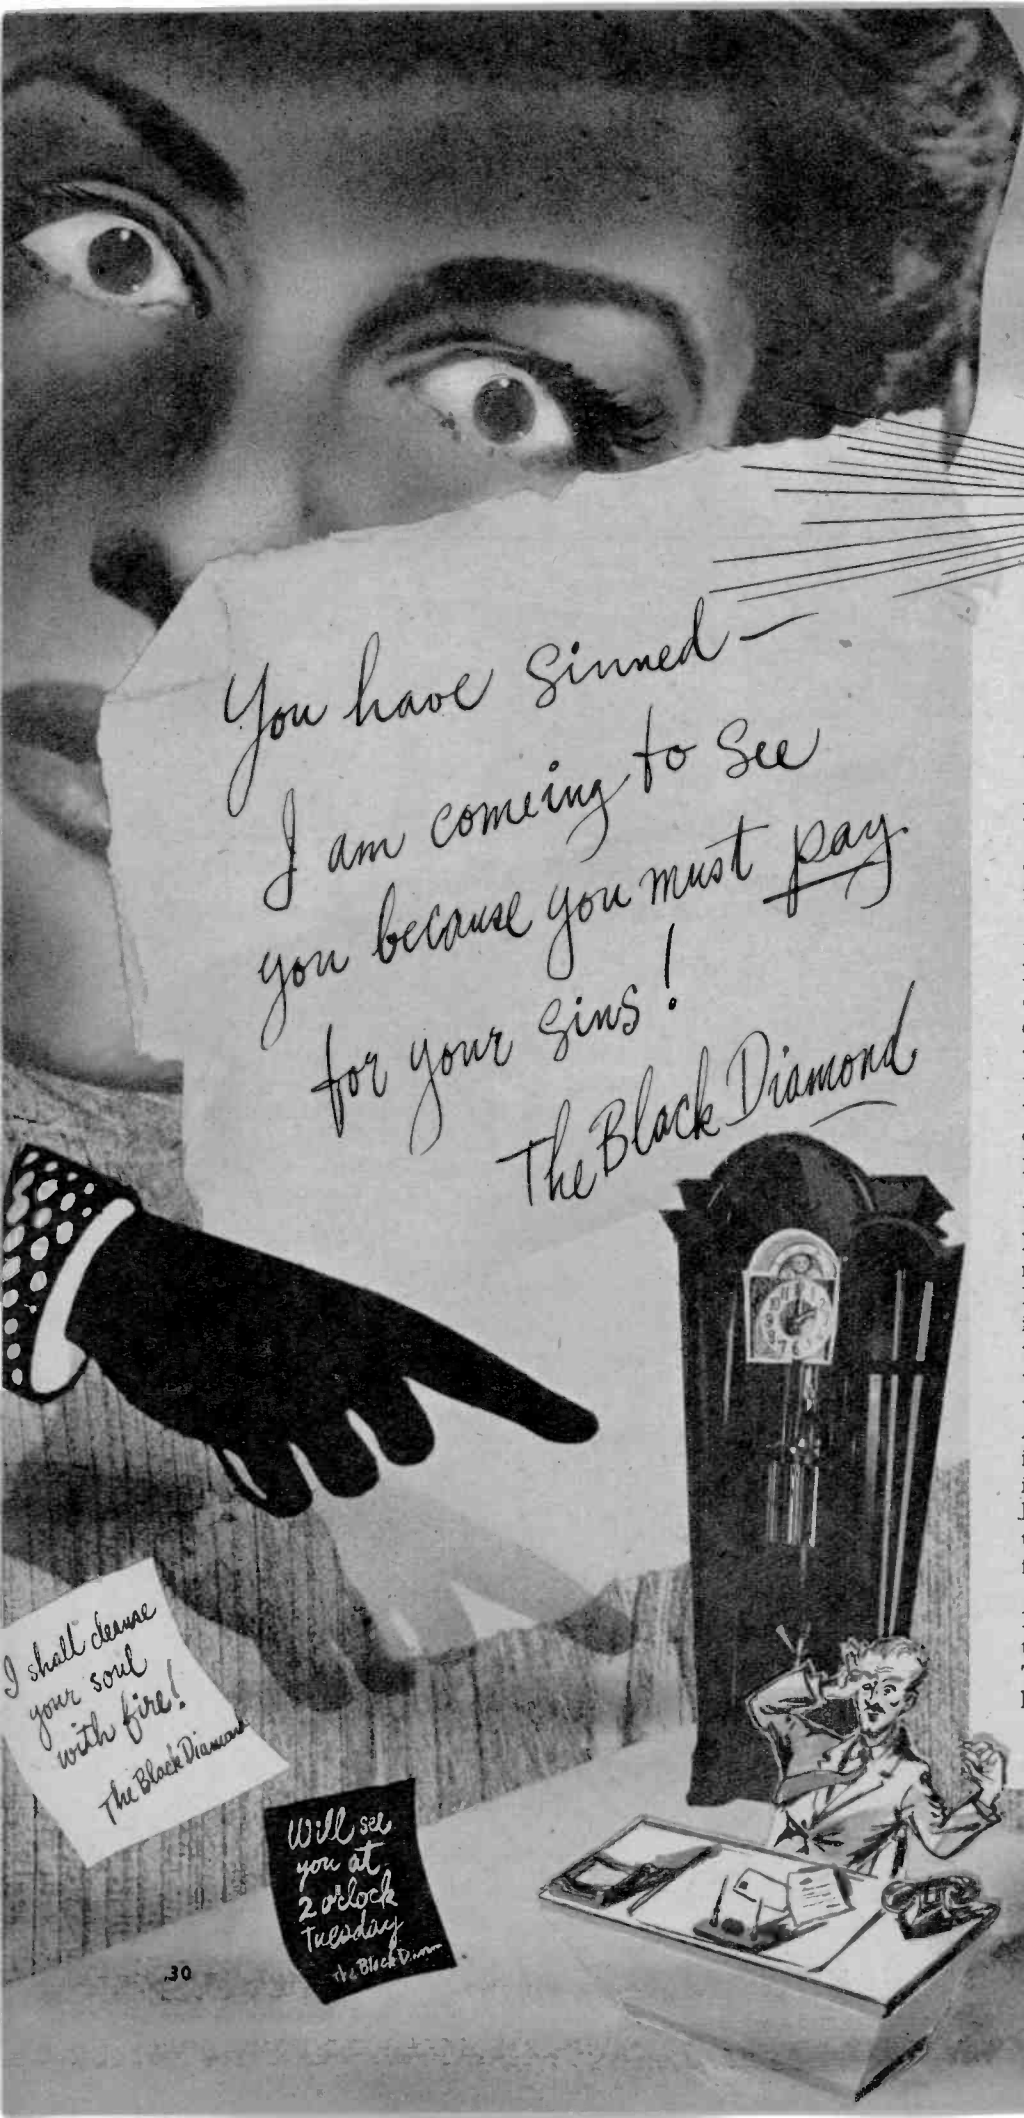 You have sinned —
I am comeing to see
you because you must pay
for your sins!
The Black Diamond
I shall cleanse
your soul
with fire!
The Black Diamond
Will see
you at
2 o'clock
Tuesday
The Black Diam
30